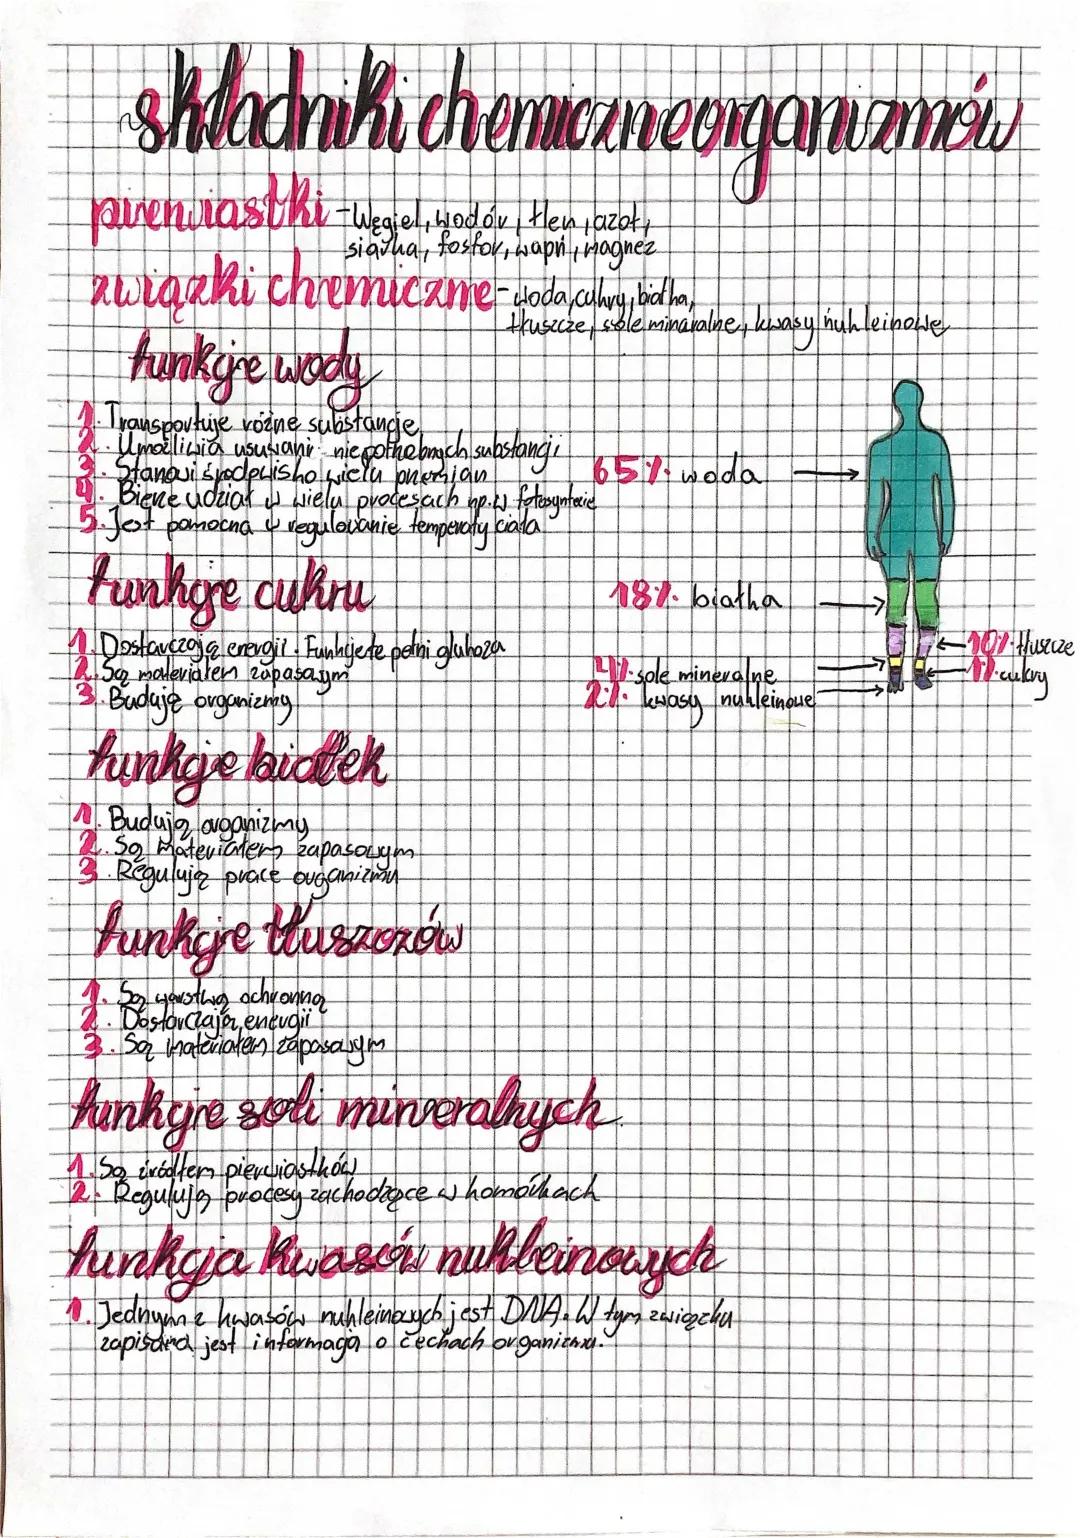 składniki chemiczne organizmów
pierwiastki - Węgiel, wodór, tlen, azot,
siarka, fosfor, wapń, magnez
związki chemiczne - woda, cukry, białka,
tłuszcze, sole minaralne, kwasy nukleinowe
funkcje wody
1. Transportuje różne substancje
2. Umożliwia usuwani niepotrzebnych substancji
3. Stanowi środowisko wielu przemian
4. Bierze udział w wielu procesach np. w fotosyntezie
5. Jest pomocna w regulowanie temperaty ciała
65% woda
funkcje cukru
18% białka
1. Dostarczają energii. Funkcje te pełni glukoza
2. Są materiałem zapasowym
3. Budują organizmy
10% tłuszcze
4% sole mineralne
1% cukry
2% kwasy nukleinowe
funkcje białek
1. Budują organizmy
2. Są materiałem zapasowym
3. Regulują prace organizmu
funkcje tłuszczów
1. Są warstwą ochronną
2. Dostarczają energii
3. Są materiałem zapasowym
funkcje soli mineralnych
1. Są źródłem pierwiastków
2. Regulują procesy zachodzące w komórkach
funkcja kwasów nukleinowych
1. Jednym z kwasów nukleinowych jest DNA. W tym związku
zapisana jest informacja o cechach organizmu.